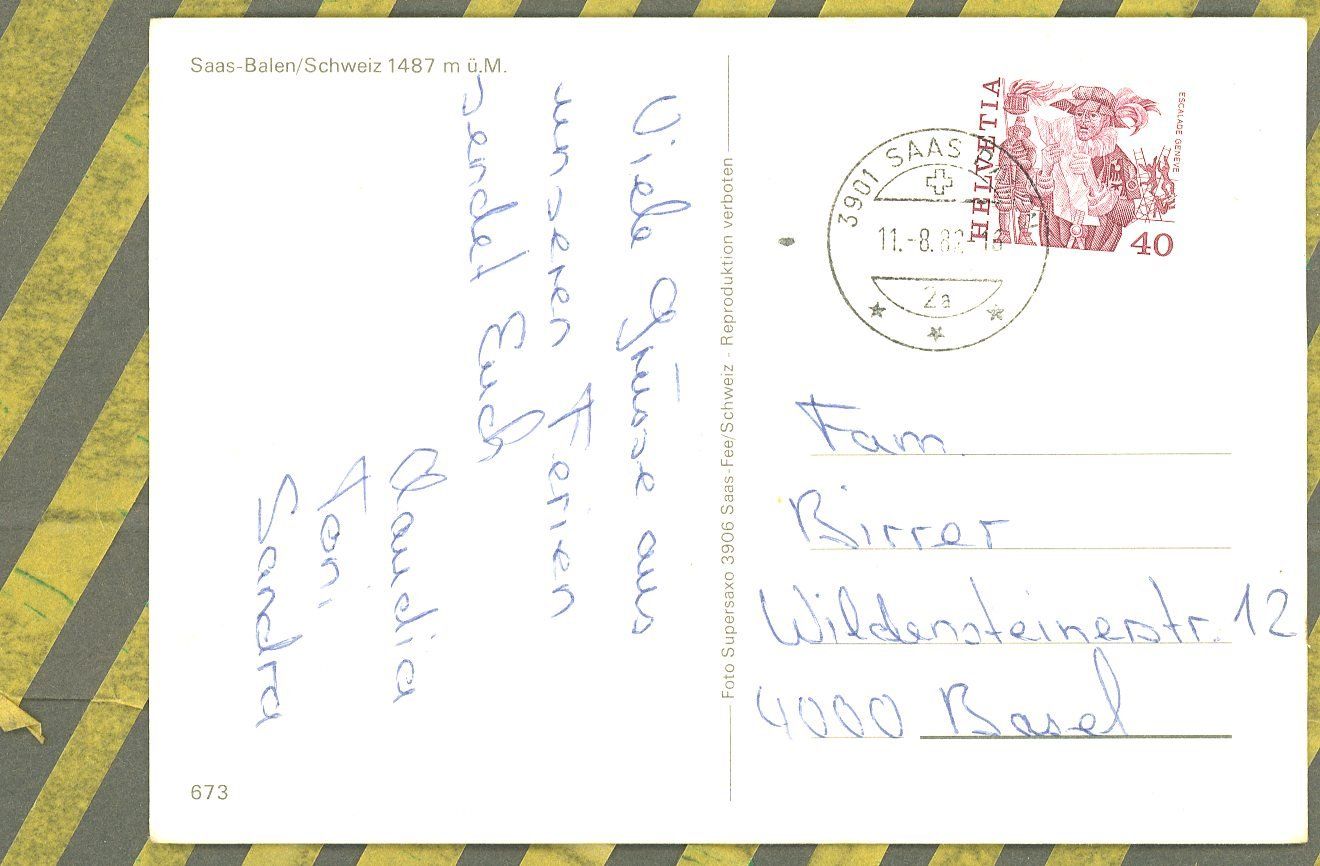 Saas-Balen/Schweiz 1487 m ü.M.
Viele Grüsse aus
unseren Ferien
sendet Euch
Claudia
Toni
Sandra
673
Foto Supersaxo 3906 Saas-Fee/Schweiz - Reproduktion verboten
HELVETIA
ESCALADE GENÈVE
40
3901 SAAS
11.-8.82
2a
Fam.
Birrer
Wildensteinerstr. 12
4000 Basel